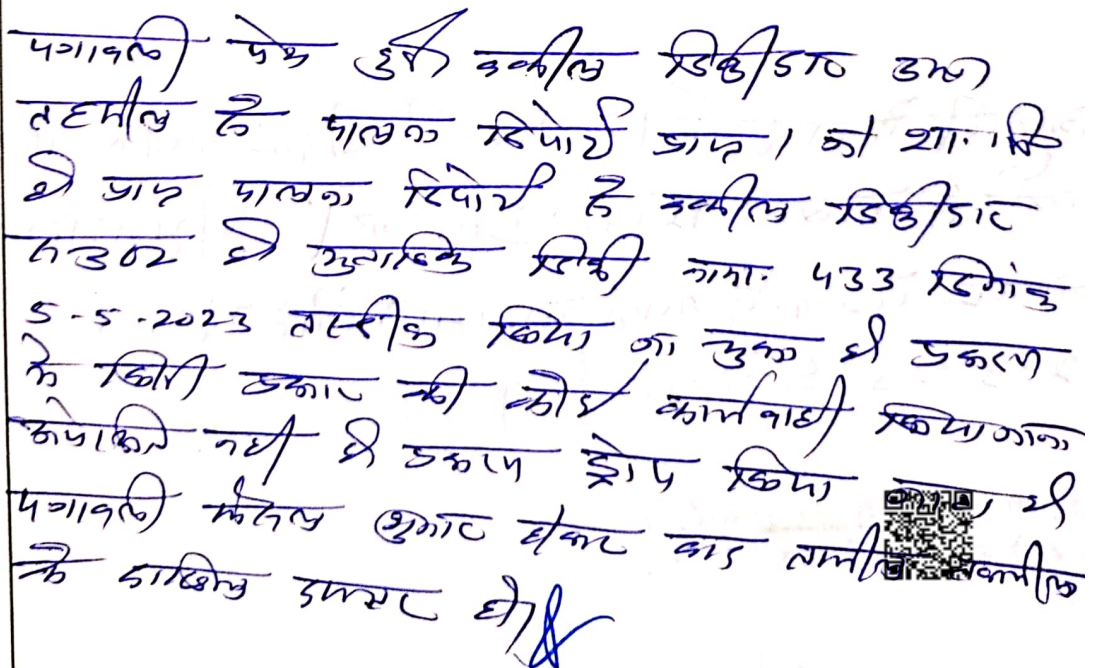 पत्रावली पेश हुई वकील डिक्रीदार उप०
तहसील से पालना रिपोर्ट प्राप्त। जो शा. मि
है प्राप्त पालना रिपोर्ट से वकील डिक्रीदार
है मुताबिक डिक्री नामा. 433 दिनांक
5-5-2023 तस्दीक किया जा चुका है प्रकरण
में किसी प्रकार की कोई कार्यवाही किया जाना
अपेक्षित नहीं है प्रकरण ड्रोप किया जाता है
पत्रावली फैसल शुमार होकर बाद तामील तकमील
के दाखिल दफ्तर हो।